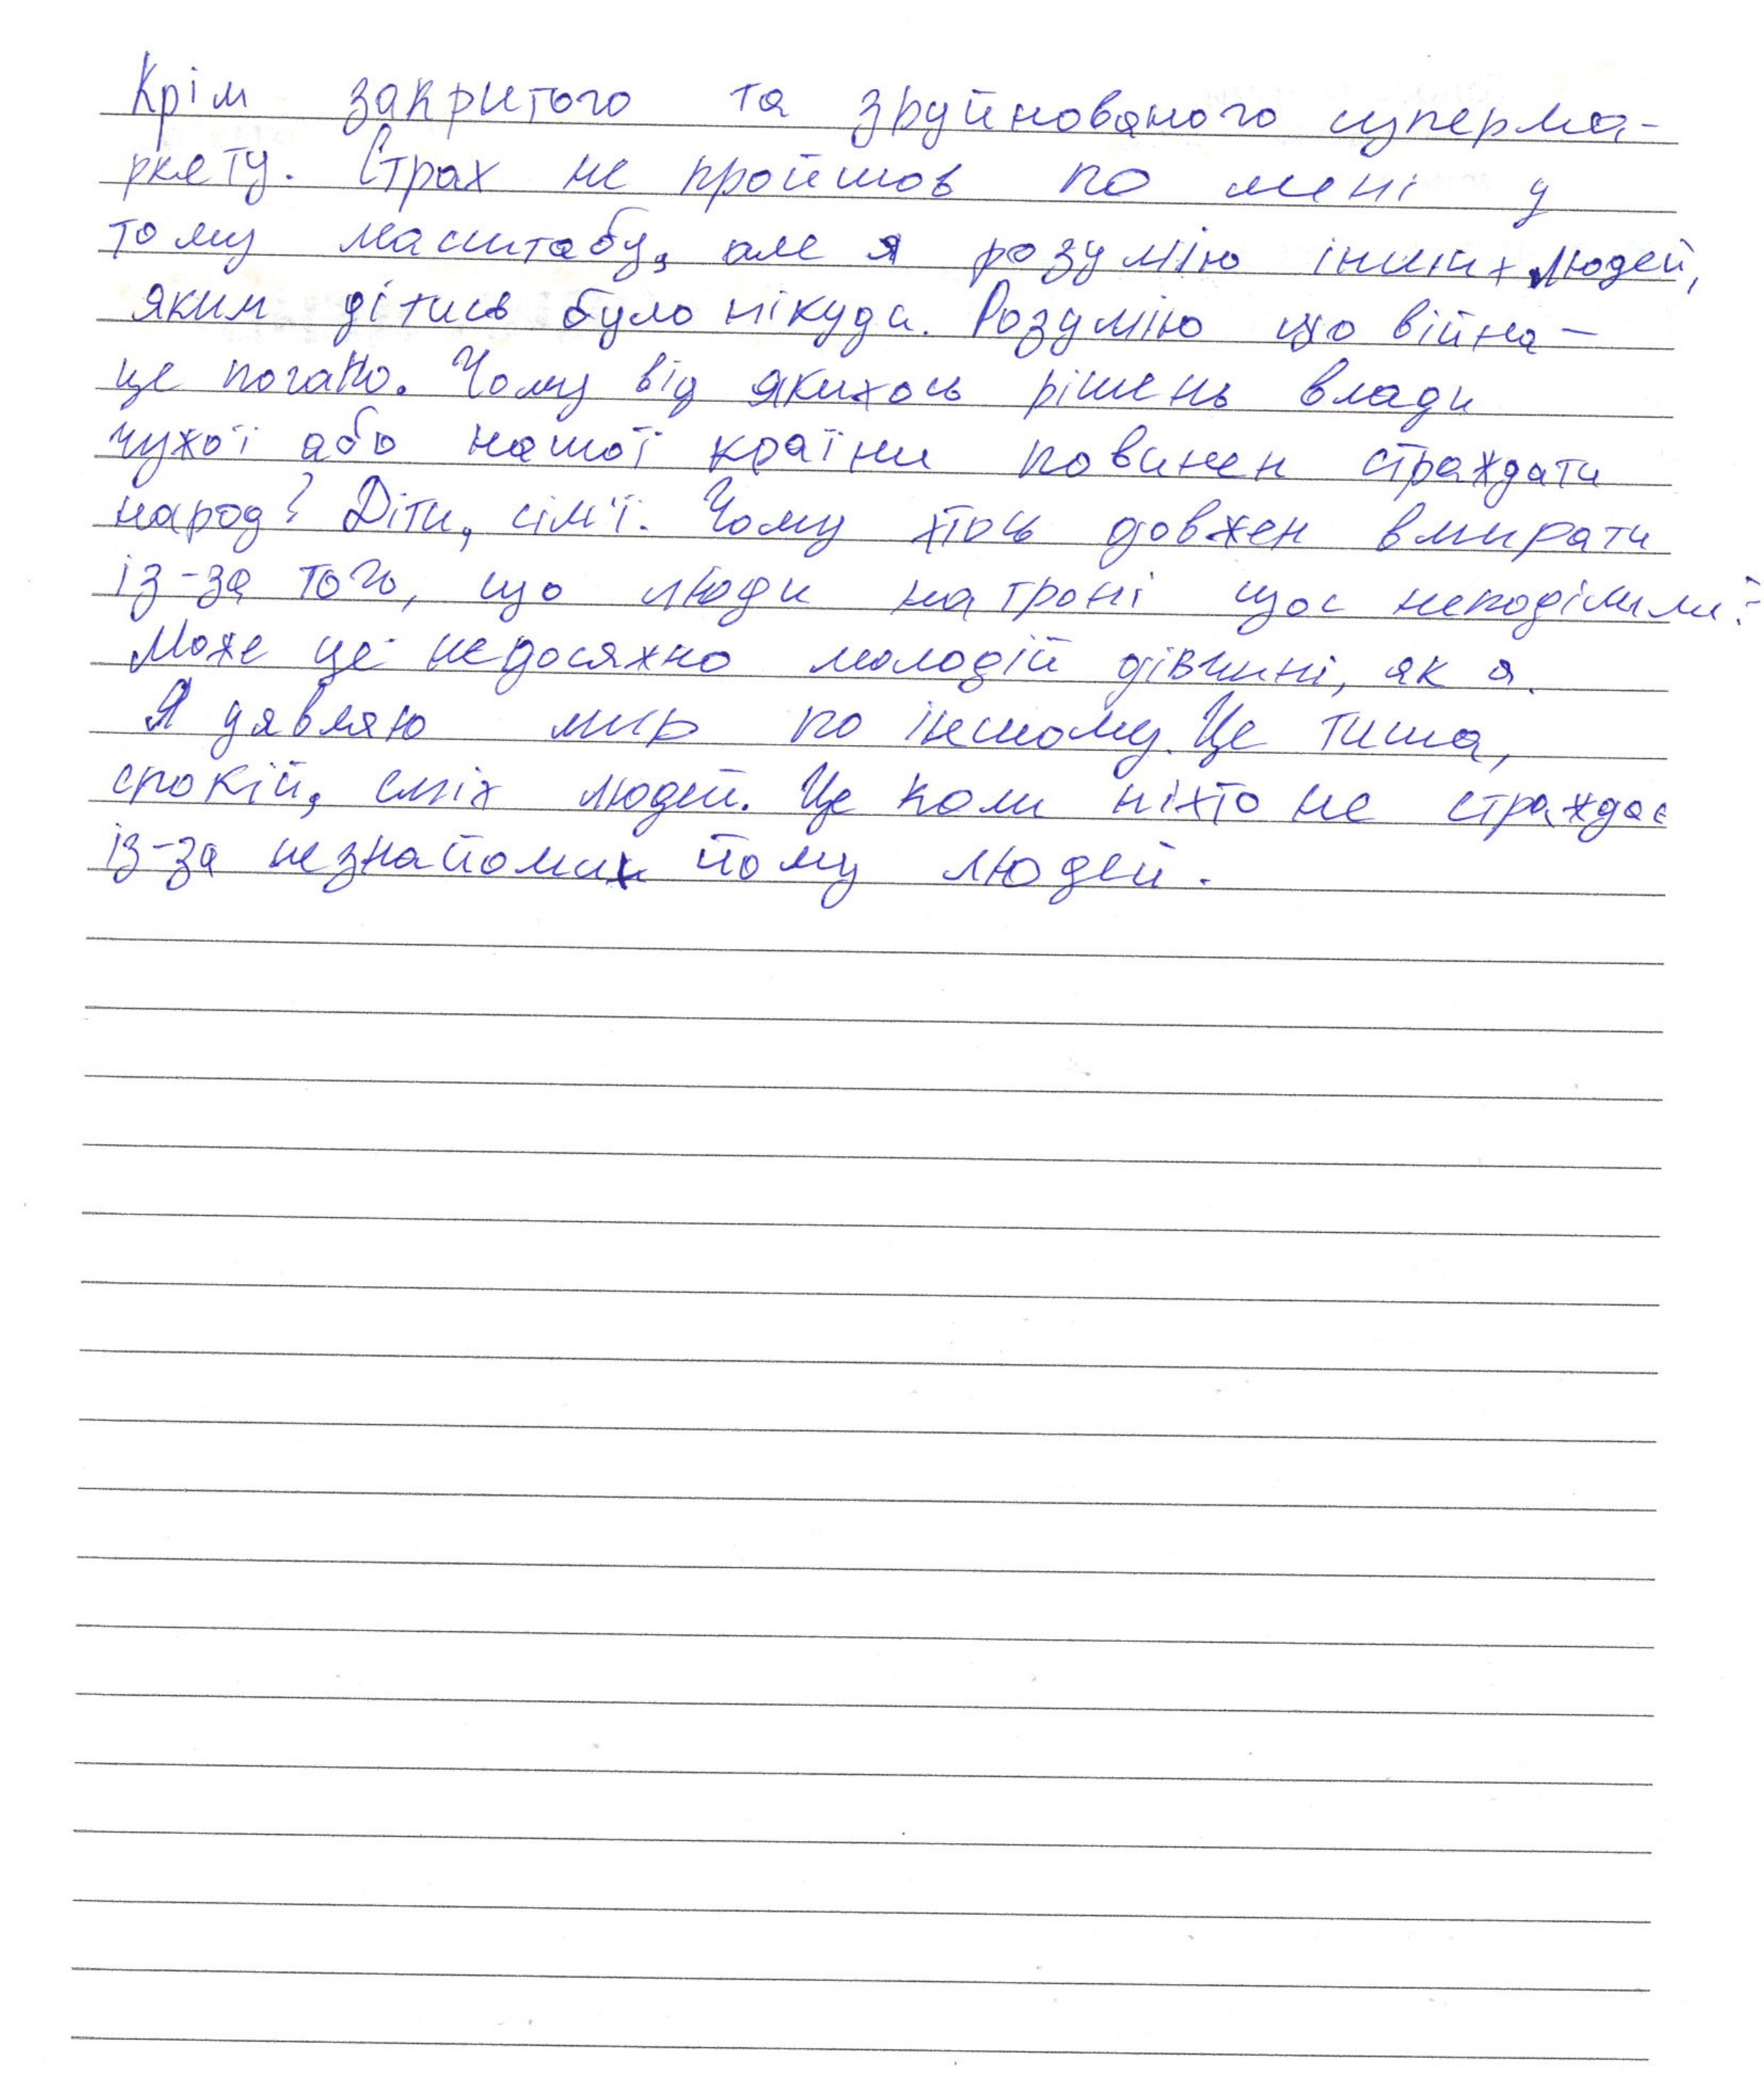 Крім закритого та зруйнованого суперма-
ркету. Страх не пройшов по мені у
тому масштабу, але я розумію інших людей,
яким дітись було нікуди. Розумію що війна –
це погано. Чому від якихось рішень влади
чужої або нашої країни повинен страждати
народ? Діти, сім'ї. Чому хтось довжен вмирати
із-за того, що люди на троні щос неподілили?
Може це недосяжно молодій дівчині, як я.
Я уявляю мир по іншому. Це тиша,
спокій, сміх людей. Це коли ніхто не страждає
із-за незнайомих йому людей.